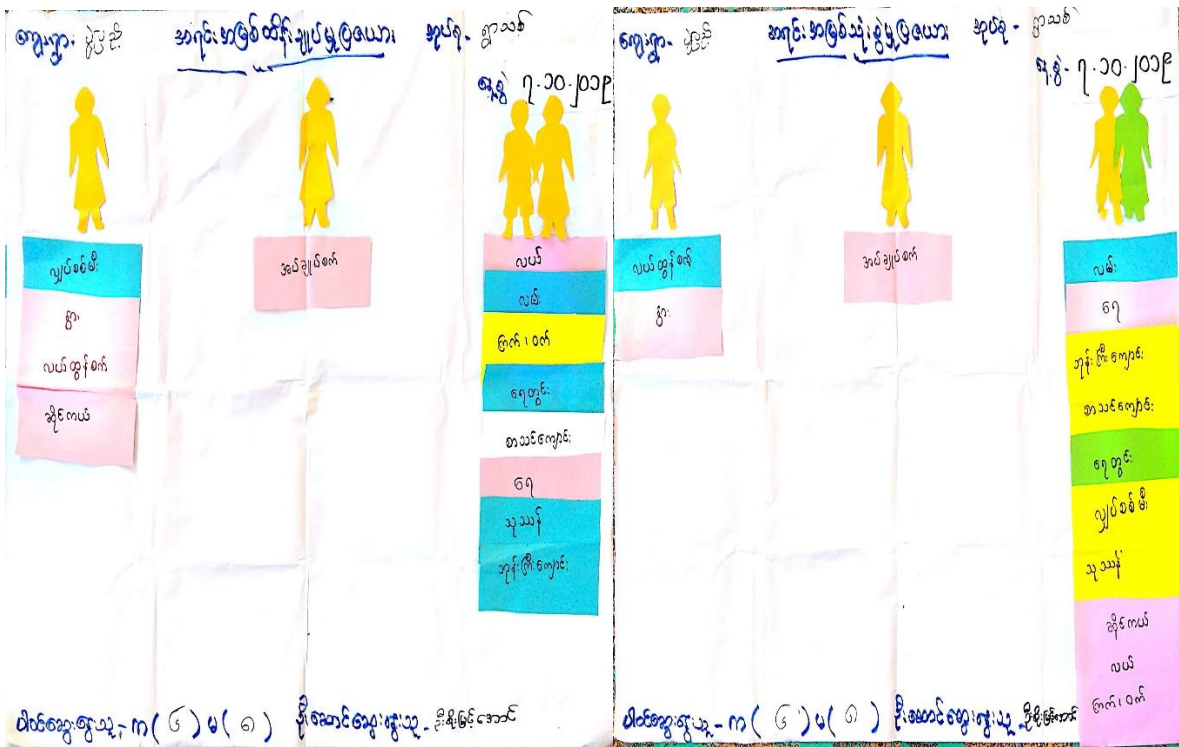 ကျေးရွာ- ပွဲပြည်
အရင်းအမြစ်ထိန်းချုပ်မှုပြဇယား
အုပ်စု- ရွာသစ်
နေ့စွဲ- ၇.၁၀.၂၀၁၉
လျှပ်စစ်မီး
နွား
လယ်ထွန်စက်
ဆိုင်ကယ်
အပ်ချုပ်စက်
လယ်
လမ်း
ကြက်၊ဝက်
ရေတွင်း
စာသင်ကျောင်း
ရေ
သုဿန်
ဘုန်းကြီးကျောင်း
ပါဝင်ဆွေးနွေးသူ- က ( ၆ ) မ ( ၈ ) ဦးဆောင်ဆွေးနွေးသူ- ဦးစိုးမြင့်အောင်
ကျေးရွာ- ပွဲပြည်
အရင်းအမြစ်သုံးစွဲမှုပြဇယား
အုပ်စု- ရွာသစ်
နေ့စွဲ- ၇.၁၀.၂၀၁၉
လယ်ထွန်စက်
နွား
အပ်ချုပ်စက်
လမ်း
ရေ
ဘုန်းကြီးကျောင်း
စာသင်ကျောင်း
ရေတွင်း
လျှပ်စစ်မီး
သုဿန်
ဆိုင်ကယ်
လယ်
ကြက်၊ဝက်
ပါဝင်ဆွေးနွေးသူ- က ( ၆ ) မ ( ၈ ) ဦးဆောင်ဆွေးနွေးသူ- ဦးစိုးမြင့်အောင်